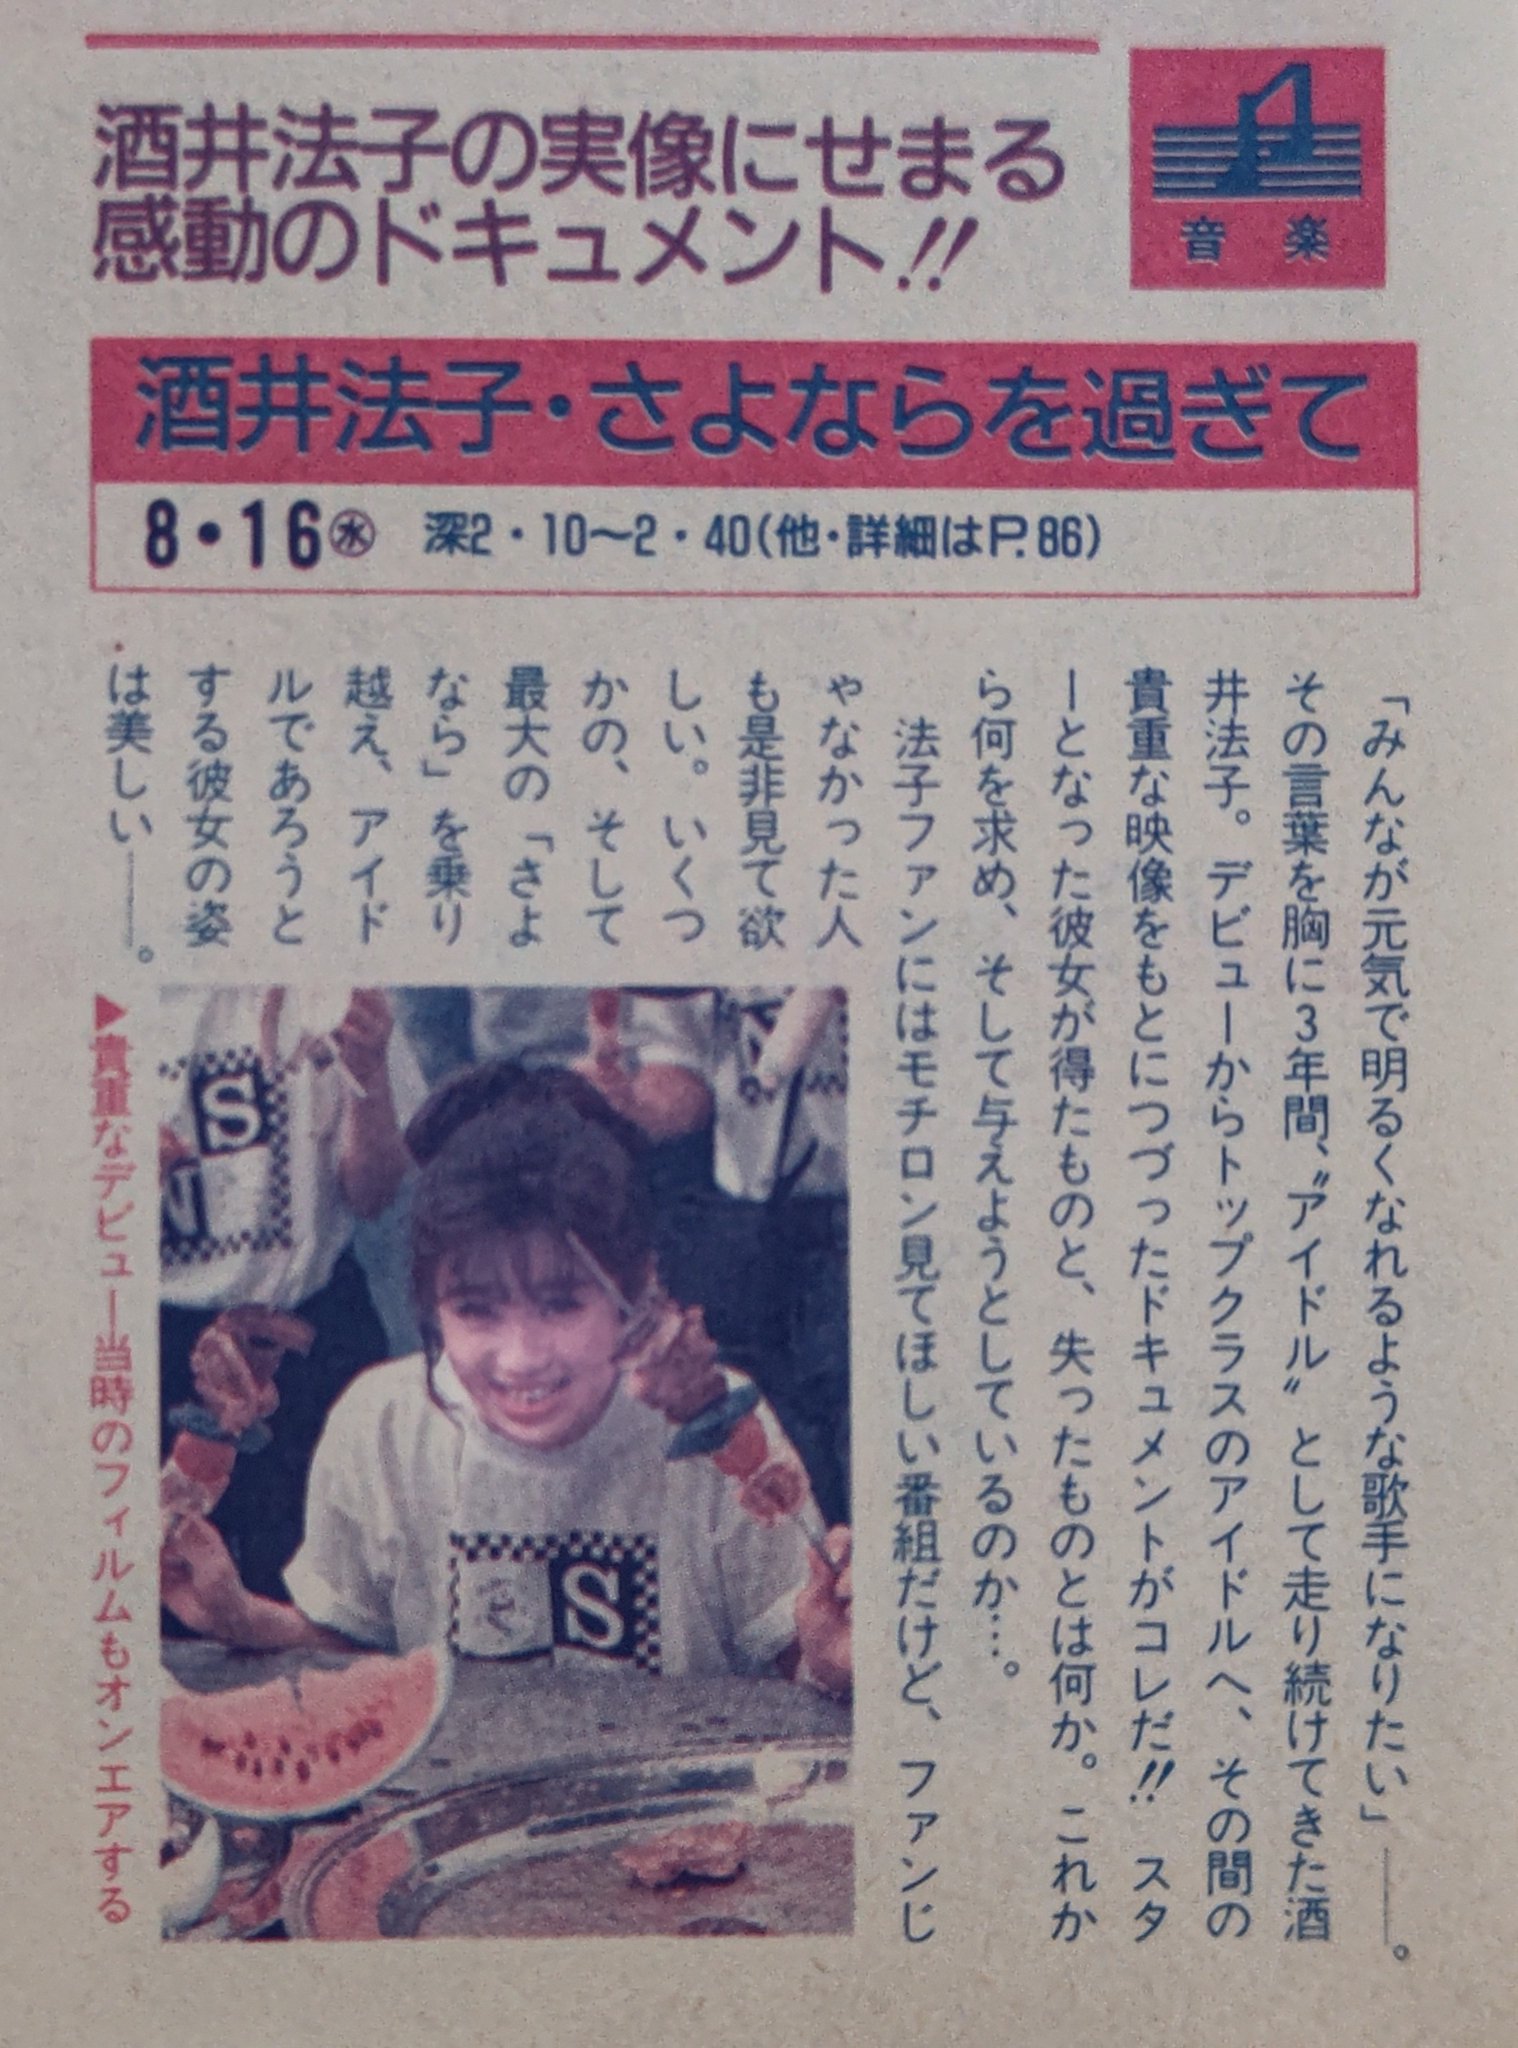 音楽
酒井法子の実像にせまる
感動のドキュメント!!
酒井法子・さよならを過ぎて
8・16㊌ 深2・10〜2・40(他・詳細はP.86)
「みんなが元気で明るくなれるような歌手になりたい」――。
その言葉を胸に3年間、〝アイドル〟として走り続けてきた酒
井法子。デビューからトップクラスのアイドルへ、その間の
貴重な映像をもとにつづったドキュメントがコレだ!! スタ
ーとなった彼女が得たものと、失ったものとは何か。これか
ら何を求め、そして与えようとしているのか…。
法子ファンにはモチロン見てほしい番組だけど、ファンじ
ゃなかった人
も是非見て欲
しい。いくつ
かの、そして
最大の「さよ
なら」を乗り
越え、アイド
ルであろうと
する彼女の姿
は美しい――。
▶貴重なデビュー当時のフィルムもオンエアする
S
N
S